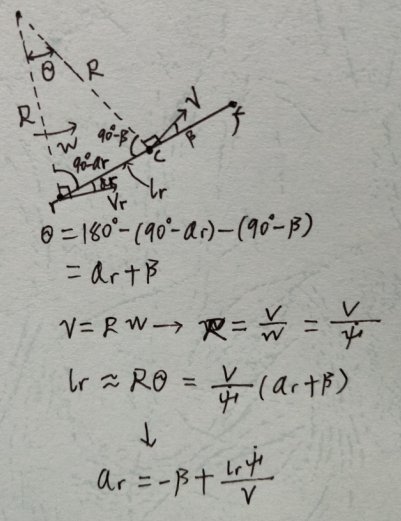 θ
R
R
w
90°-β
V
β
f
c
90°-ar
lr
Vr
r
θ = 180° - (90° - ar) - (90° - β)
= ar + β
V = R w → R = V/w = V/ψ̇
lr ≈ Rθ = V/ψ̇ (ar + β)
↓
ar = -β + lrψ̇/V